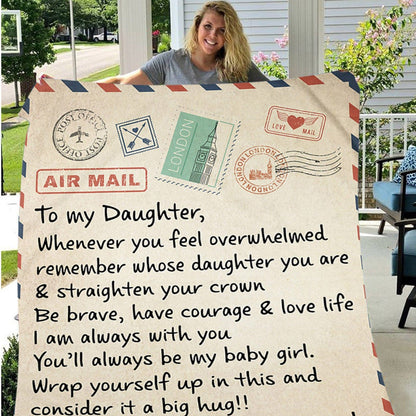 POST OFFICE
POST OFFICE
LONDON
LOVE MAIL
LONDON LONDON
LONDON
AIR MAIL
To my Daughter,
Whenever you feel overwhelmed
remember whose daughter you are
& straighten your crown
Be brave, have courage & love life
I am always with you
You'll always be my baby girl.
Wrap yourself up in this and
consider it a big hug!!